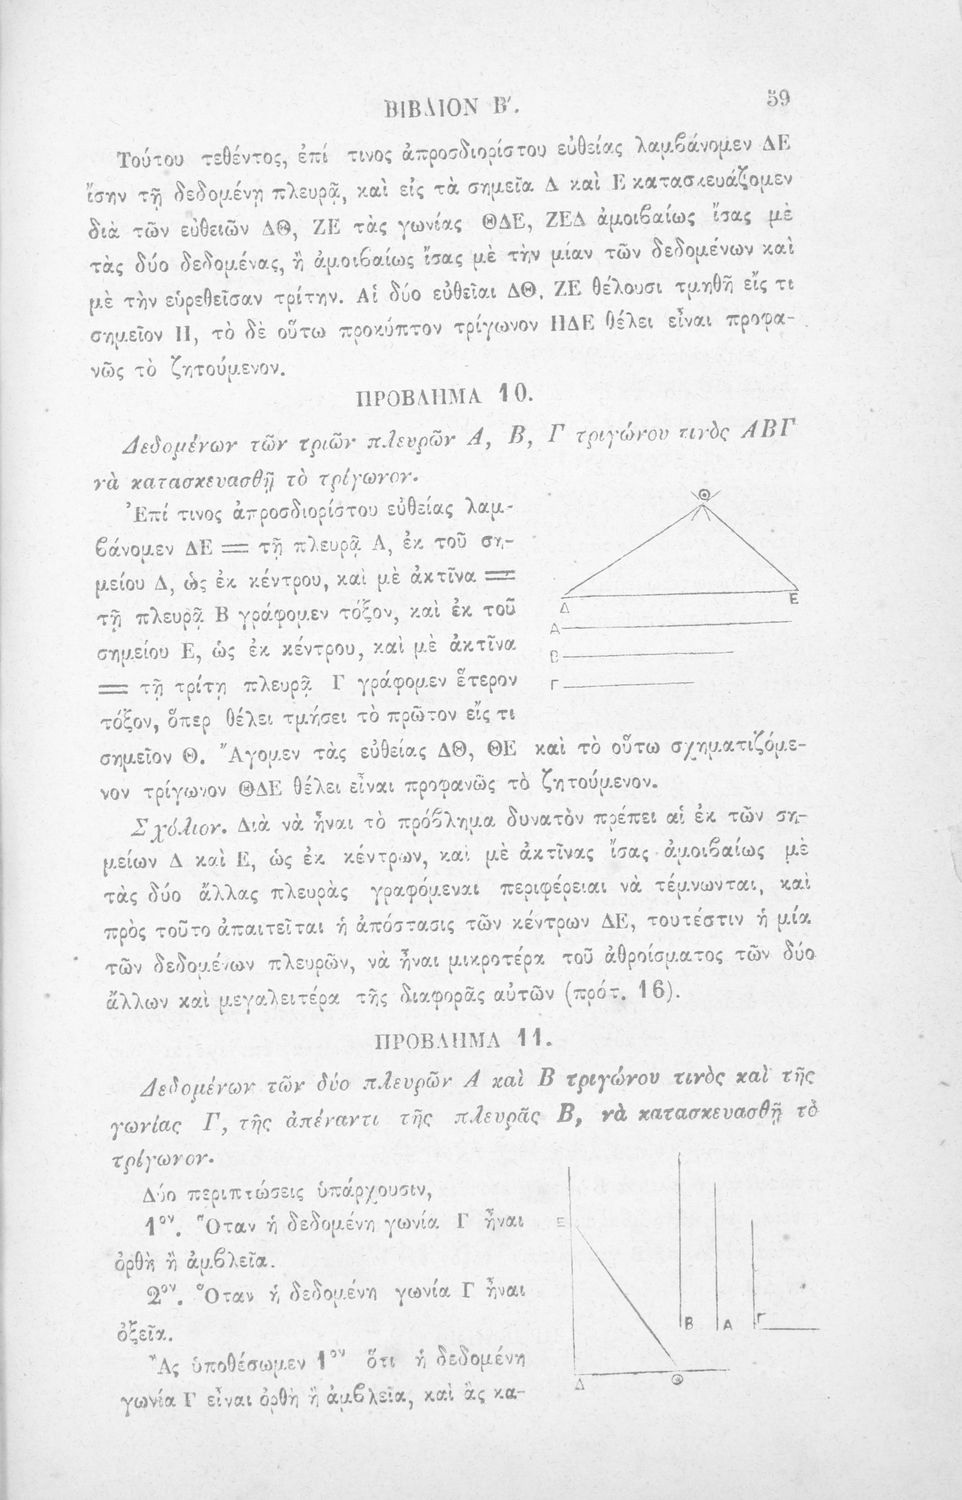 ΒΙΒΛΙΟΝ Β΄.
59
Τούτου τεθέντος, ἐπί τινος ἀπροσδιορίστου εὐθείας λαμβάνομεν ΔΕ
ἴσην τῇ δεδομένῃ πλευρᾷ, καὶ εἰς τὰ σημεῖα Δ καὶ Ε κατασκευάζομεν
διὰ τῶν εὐθειῶν ΔΘ, ΖΕ τὰς γωνίας ΘΔΕ, ΖΕΔ ἀμοιβαίως ἴσας μὲ
τὰς δύο δεδομένας, ἢ ἀμοιβαίως ἴσας μὲ τὴν μίαν τῶν δεδομένων καὶ
μὲ τὴν εὑρεθεῖσαν τρίτην. Αἱ δύο εὐθεῖαι ΔΘ, ΖΕ θέλουσι τμηθῆ εἴς τι
σημεῖον Η, τὸ δὲ οὕτω προκύπτον τρίγωνον ΗΔΕ θέλει εἶναι προφα-
νῶς τὸ ζητούμενον.
ΠΡΟΒΛΗΜΑ 10.
Δεδομένων τῶν τριῶν πλευρῶν Α, Β, Γ τριγώνου τινὸς ΑΒΓ
νὰ κατασκευασθῇ τὸ τρίγωνον.
Ἐπί τινος ἀπροσδιορίστου εὐθείας λαμ-
βάνομεν ΔΕ = τῇ πλευρᾷ Α, ἐκ τοῦ ση-
μείου Δ, ὡς ἐκ κέντρου, καὶ μὲ ἀκτῖνα =
τῇ πλευρᾷ Β γράφομεν τόξον, καὶ ἐκ τοῦ
σημείου Ε, ὡς ἐκ κέντρου, καὶ μὲ ἀκτῖνα
= τῇ τρίτῃ πλευρᾷ Γ γράφομεν ἕτερον
τόξον, ὅπερ θέλει τμήσει τὸ πρῶτον εἴς τι
σημεῖον Θ. Ἄγομεν τὰς εὐθείας ΔΘ, ΘΕ καὶ τὸ οὕτω σχηματιζόμε-
νον τρίγωνον ΘΔΕ θέλει εἶναι προφανῶς τὸ ζητούμενον.
Θ
Δ
Ε
Α
Β
Γ
Σχόλιον. Διὰ νὰ ἦναι τὸ πρόβλημα δυνατὸν πρέπει αἱ ἐκ τῶν ση-
μείων Δ καὶ Ε, ὡς ἐκ κέντρων, καὶ μὲ ἀκτῖνας ἴσας ἀμοιβαίως μὲ
τὰς δύο ἄλλας πλευρὰς γραφόμεναι περιφέρειαι νὰ τέμνωνται, καὶ
πρὸς τοῦτο ἀπαιτεῖται ἡ ἀπόστασις τῶν κέντρων ΔΕ, τουτέστιν ἡ μία
τῶν δεδομένων πλευρῶν, νὰ ἦναι μικροτέρα τοῦ ἀθροίσματος τῶν δύο
ἄλλων καὶ μεγαλειτέρα τῆς διαφορᾶς αὐτῶν (πρότ. 16).
ΠΡΟΒΛΗΜΑ 11.
Δεδομένων τῶν δύο πλευρῶν Α καὶ Β τριγώνου τινὸς καὶ τῆς
γωνίας Γ, τῆς ἀπέναντι τῆς πλευρᾶς Β, νὰ κατασκευασθῇ τὸ
τρίγωνον.
Δύο περιπτώσεις ὑπάρχουσιν,
1ον. Ὅταν ἡ δεδομένη γωνία Γ ἦναι
ὀρθὴ ἢ ἀμβλεῖα.
2ον. Ὅταν ἡ δεδομένη γωνία Γ ἦναι
ὀξεῖα.
Ἂς ὑποθέσωμεν 1ον ὅτι ἡ δεδομένη
γωνία Γ εἶναι ὀρθὴ ἢ ἀμβλεῖα, καὶ ἂς κα-
Ε
Β
Α
Γ
Δ
Θ